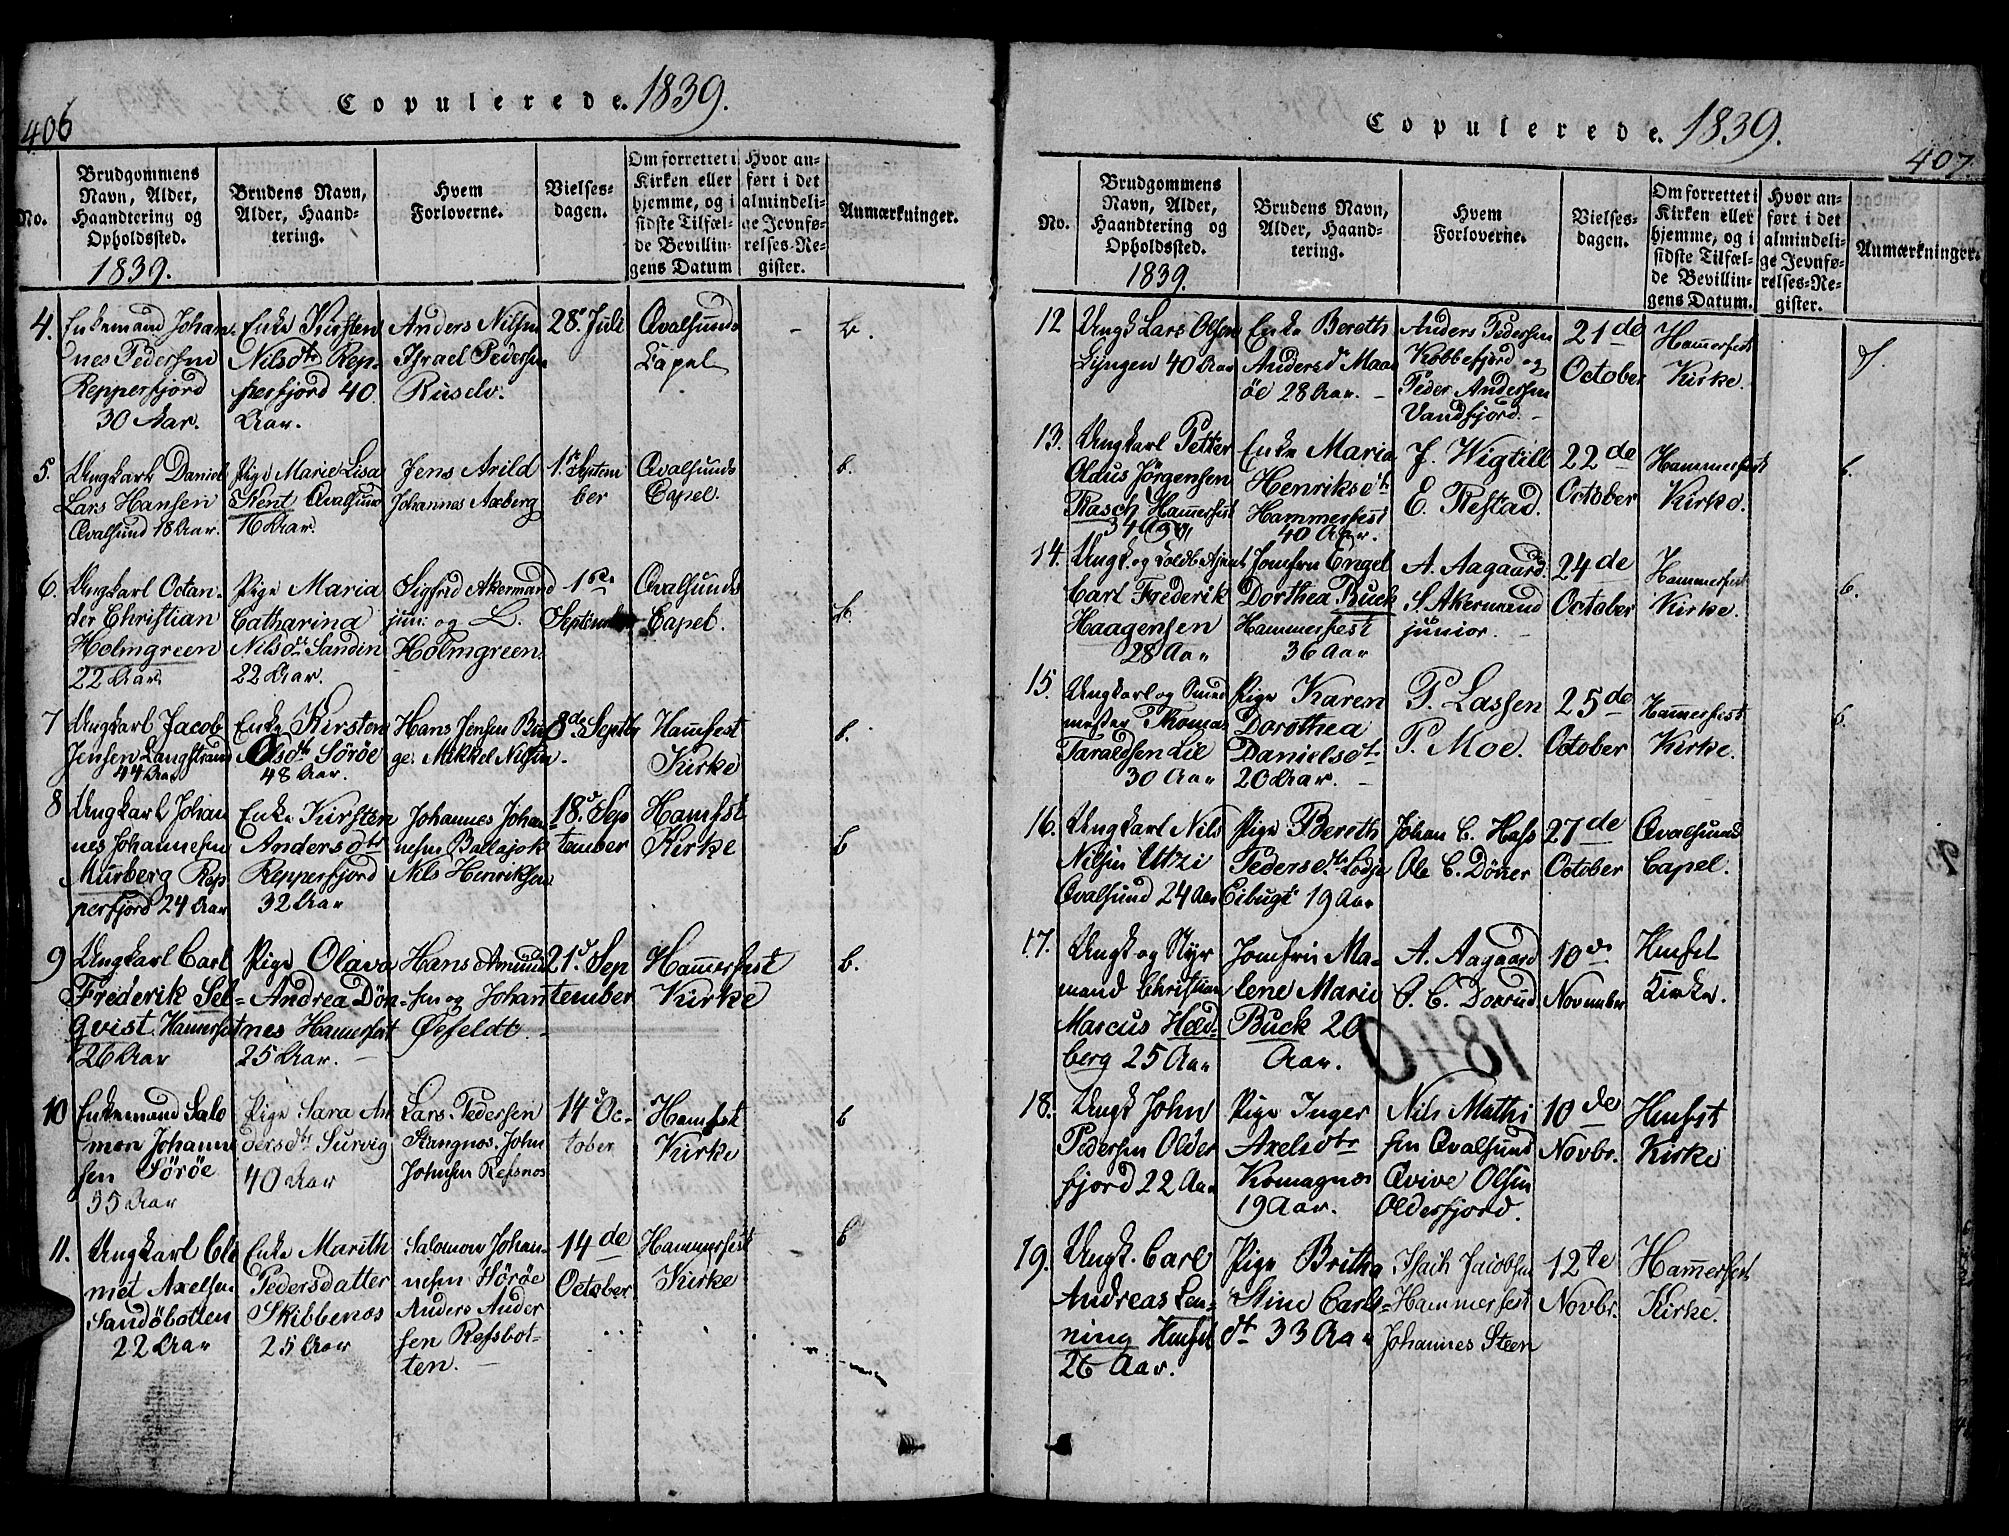 406
Copulerede. 1839.
No.
Brudgommens
Navn, Alder,
Haandtering og
Opholdssted.
1839.
Brudens Navn,
Alder, Haand-
tering.
Hvem
Forloverne.
Vielses-
dagen.
Om forrettet i
Kirken eller
hjemme, og i
sidste Tilfæl-
de Bevillin-
gens Datum
Hvor an-
ført i det
almindeli-
ge Jevnfø-
relses-Re-
gister.
Anmærkninger.
4.
Enkemand Johan-
nes Pedersen
Repperfjord
30 Aar.
Enke Kirsten
Nilsdtr Rep-
perfjord 40
Aar.
Anders Nilsen
Israel Pedersen
Ruselv.
28de Juli
Qvalsunds
Capel
b.
5.
Ungkark Daniel
Lars Hansen
Qvalsund 18 Aar.
Pige Marie Lisa
Kent Qvalsund
16 Aar.
Jens Arild
Johannes Axberg
1ste Septem
ber
Qvalsunds
Capel.
b.
6.
Ungkarl Octan-
der Christian
Holmgreen
22 Aar.
Pige Maria
Catharina
Nilsdtr Sandin
22 Aar.
Sigfred Akermand
jun: og L.
Holmgreen.
1ste
September
Qvalsunds
Capel.
b.
7
Ungkarl Jacob
Jensen Langstrand
44 Aar
Enke Kirsten
Olsdtr Söröe
48 Aar.
Hans Jensen Bu-
ge. Mikkel Nilsen.
8de Septbr
Hamfest
Kirke
b.
8
Ungkarl Johan
nes Johannesen
Murberg Rep
perfjord 24 Aar
Enke Kirsten
Andersdtr
Repperfjord
32 Aar
Johannes Johan-
nesen Ballajok
Nils Henriksen
18de Sep
tember
Hamfst
Kirke
b
9
Ungkarl Carl
Frederik Sel-
qvist Hamerfest
26 Aar
Pige Olava
Andrea Dön-
nes Hamerfest
25 Aar.
Hans Amund
sen og Johan
Örfeldt.
21de Sep
tember
Hamerfest
Kirke
b.
10
Enkemand Salo
mon Johanne
sen Söröe
35 Aar
Pige Sara An
dersdtr Survig
40 Aar
Lars Pedersen
Klangnos. John
Johnsen Refsnos
14de Oc-
tober
Hamfst
Kirke
b
11.
Ungkarl Cle
met Axelsen
Sandöbotten
22 Aar
Enke Marith
Pedersdatter
Skibbenos
25 Aar
Salomon Johan-
nesen Söröe
Anders Ander
sen Refsbot-
ten.
14de
October
Hammerfest
Kirke
b
407.
Copulerede. 1839.
No.
Brudgommens
Navn, Alder,
Haandtering og
Opholdssted.
1839.
Brudens Navn,
Alder, Haand-
tering.
Hvem
Forloverne.
Vielses-
dagen.
Om forrettet i
Kirken eller
hjemme, og i
sidste Tilfæl-
de Bevillin-
gens Datum.
Hvor an-
ført i det
almindeli-
ge Jevnfø-
relses-Re-
gister.
Anmærkninger.
12
Ungk Lars Olsen
Lyngen 40 Aar
Enke Bereth
Andersdr Maas
öe 28 Aar.
Anders Pedersen
Kobbefjord og
Peder Andersen
Vandfjord.
21de
October
Hamerfest
Kirke.
13.
Ungkarl Petter
Oldus Jörgensen
Rasch Hamerfest
34 Aar
Enke Maria
Henriksdtr
Hammerfest
40 Aar.
J. Wigtill
E. Restad.
22de
October
Hammerfest
Kirke.
b.
14.
Ungk. og Toldb: Asjent
Carl Frederik
Haagensen
28 Aar
Jomfru Engel
Dorthea Buck
Hammerfest
36 Aar
A. Aagaard
S. Akermand
junior.
24de
October
Hammerfest
Kirke.
b.
15.
Ungkarl og Smed
mester Thomas
Taraldsen Lie
30 Aar
Pige Karen
Dorothea
Danielsdtr
20 Aar.
P. Lassen
P. Moe.
25de
October
Hamerfest
Kirke.
b.
16.
Ungkarl Nils
Nilsen Utzi
Qvalsund 24 Aar
Pige Bereth
Pedersdtr Lodje
Eibugt 19 Aar
Johan C. Hass
Ole C. Döner
27de
October
Qvalsund
Capel.
17.
Ungk og Styr
mand Christian
Marcus Held-
berg 25 Aar
Jomfru Ma-
lene Marie
Buck 20
Aar.
A. Aagaard
O. C. Doxrud
10de
November
Hmfst
Kirke.
1840
18.
Ungk John
Pedersen Older
fjord 22 Aar
Pige Inger
Axelsdtr
Komagnes
19 Aar.
Nils Mathi
sen Qvalsund
Qvive Olsen
Olderfjord.
10de
Novbr.
Hmfst
Kirke
19.
Ungk. Carl
Andreas Len-
ning Hmfst
26 Aar.
Pige Britha
Stine Carls-
dt 33 Aar
Isach Jacobsen
Hammerfest
Johannes Steen
12te
Novbr.
Hamerfest
Kirke.